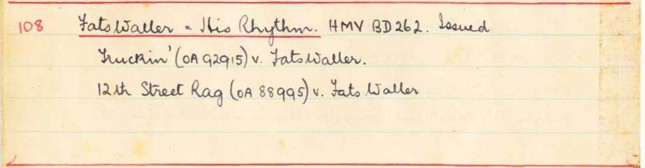 108 Fats Waller - His Rhythm. HMV BD262. Issued
Truckin' (OA 92915) v. Fats Waller.
12th Street Rag (OA 88995) v. Fats Waller